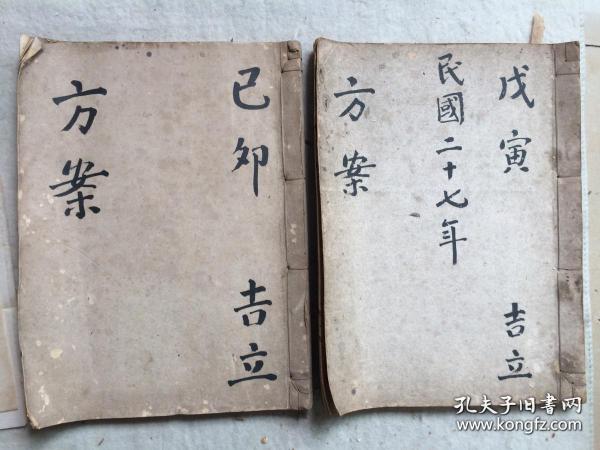 己卯 吉立
方案
戊寅 吉立
民國二十七年
方案
孔夫子旧書网
www.kongfz.com